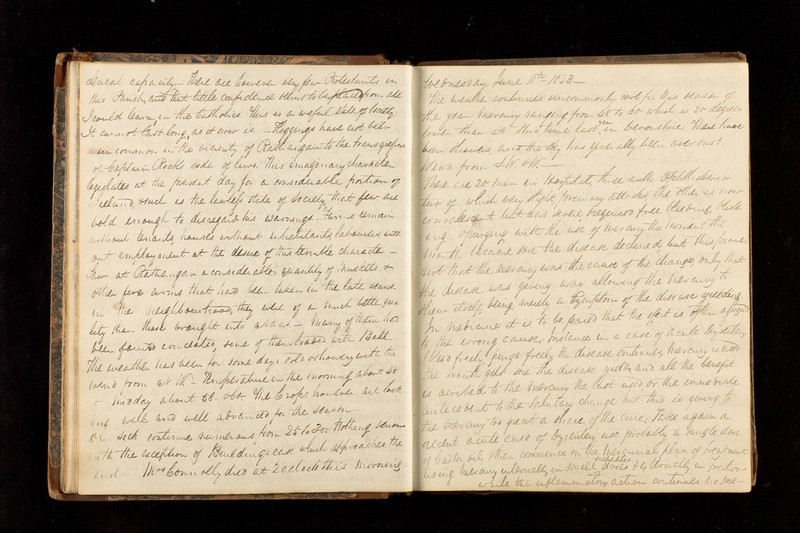 clerical capacity – There are however very few Protestants in
this Parish, and but little confidence seems to be placed from all
I could learn in the Catholics. This is a woful state of Society.
It cannot last long, as it now is – Floggings have not been
uncommon in the vicinity of Rathangan to the transgressors
of Captain Rocks code of laws. This imaginary character
legislates at the present day for a considerable portion of
Ireland. Such is the lawless state of Society that few are
bold enough to disregard his warnings – Farms remain
without tenants, houses without inhabitants, labourers with
out employment at the desire of this terrible character –
Saw at Rathangan a considerable quantity of muskets &
other fire arms that had been taken in the late search
in the neighbourhood, they were of a much better qua
lity than those brought into – many of them had
been found concealed, some of them loaded with Ball.
The weather has been for some days cold & showery with the
wind from W – Temperature in the morning about 50
– midday about 58. or 60. The Crops however all look
ing well and well advanced for the season
Our sick continue numerous from 25 to 30. Nothing serious
with the exception of Buildings case which approaches the
end – Mrs. Connolly died at 2 oclock this morning
Wednesday June 11th 1823 –
The weather continues uncommonly cool for this season of
the year – Mercury ranging from 50 to 60 which is 20 degrees
lower than at this time last year in Devonshire. There have
been showers, and the sky has generally been overcast.
Wind from S.W. & W. –
There are 20 men in Hospital, three with Ophthalmia
two of which very slight primary attacks, the other is now
convalescent but was severe & required free bleeding, black
ing & purging with the use of mercury the moment the
mouth became sore the disease declined but this proves
not that the mercury was the cause of the change, only that
the disease was giving way allowing the mercury to
shew itself, being merely a symptom of the disease yielding
In medicine it is to be feared that the effect is often assigned
to the wrong cause, instance in a case of acute Dysentery
bleed freely, purge freely the disease continues, mercury is used
the mouth gets sore the disease yields and all the benefit
is ascribed to the mercury the last used, or the immediate
antecedent to the salutary change but this is giving to
the mercury too great a share of the cure; Take again a
recent acute case of Dysentery use probably a single dose
of Castor oil then commence on the mercurial plan of treatment
using mercury internally in small doses & externally in frictions
while the inflammatory action continues no sore –